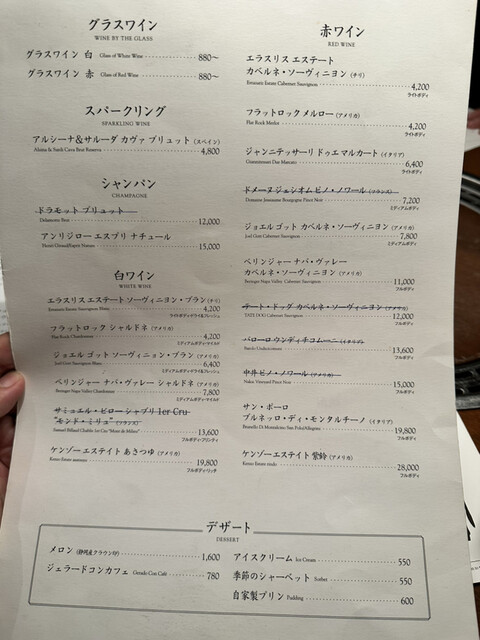 グラスワイン
WINE BY THE GLASS
グラスワイン 白 Glass of White Wine 880〜
グラスワイン 赤 Glass of Red Wine 880〜
スパークリング
SPARKLING WINE
アルシーナ&サルーダ カヴァ ブリュット (スペイン)
4,800
シャンパン
CHAMPAGNE
ドラモット ブリュット
Delamotte Brut 12,000
アンリジロー エスプリ ナチュール
15,000
白ワイン
WHITE WINE
エラスリス エステート ソーヴィニヨン・ブラン (チリ)
4,200
フラットロック シャルドネ (アメリカ)
Flat Rock Chardonnay 4,200
ミディアムボディ・マイルド
ジョエル ゴット ソーヴィニョン・ブラン (アメリカ)
Joel Gott Sauvignon Blanc 6,400
ベリンジャー ナパ・ヴァレー シャルドネ (アメリカ)
Beringer Napa Valley Chardonnay 7,800
ミディアムボディ・マイルド
サミュエル・ビロー シャブリ 1er Cru
"モンド・ミリュ" (フランス)
13,600
フルボディ・フルーティ
ケンゾーエステイト あさつゆ (アメリカ)
Kenzo Estate asatsuyu 19,800
フルボディ・リッチ
赤ワイン
RED WINE
エラスリス エステート
カベルネ・ソーヴィニヨン (チリ)
Errazuriz Estate Cabernet Sauvignon 4,200
ライトボディ
フラットロック メルロー (アメリカ)
Flat Rock Merlot 4,200
ライトボディ
ジャンニテッサーリ ドゥエ マルカート (イタリア)
Giannitessari Due Marcato 6,400
ライトボディ
ドメーヌジェシオム ピノ・ノワール (フランス)
Domaine Jessiaume Bourgogne Pinot Noir 7,200
ミディアムボディ
ジョエル ゴット カベルネ・ソーヴィニヨン (アメリカ)
Joel Gott Cabernet Sauvignon 7,800
ミディアムボディ
ベリンジャー ナパ・ヴァレー
カベルネ・ソーヴィニヨン (アメリカ)
Beringer Napa Valley Cabernet Sauvignon 11,000
フルボディ
テート・ドッグ カベルネ・ソーヴィニヨン (アメリカ)
TATE DOG Cabernet Sauvignon 12,000
フルボディ
バローロ ウンディチコムーニ (イタリア)
13,600
フルボディ
中牛ピノ・ノワール (アメリカ)
15,000
フルボディ
サン・ポーロ
ブルネッロ・ディ・モンタルチーノ (イタリア)
19,800
フルボディ
ケンゾーエステイト 紫鈴 (アメリカ)
Kenzo Estate rindo 28,000
フルボディ
デザート
DESSERT
メロン (静岡産クラウン印) 1,600
ジェラードコンカフェ Gerado Con Café 780
アイスクリーム Ice Cream 550
季節のシャーベット Sorbet 550
自家製プリン Pudding 600